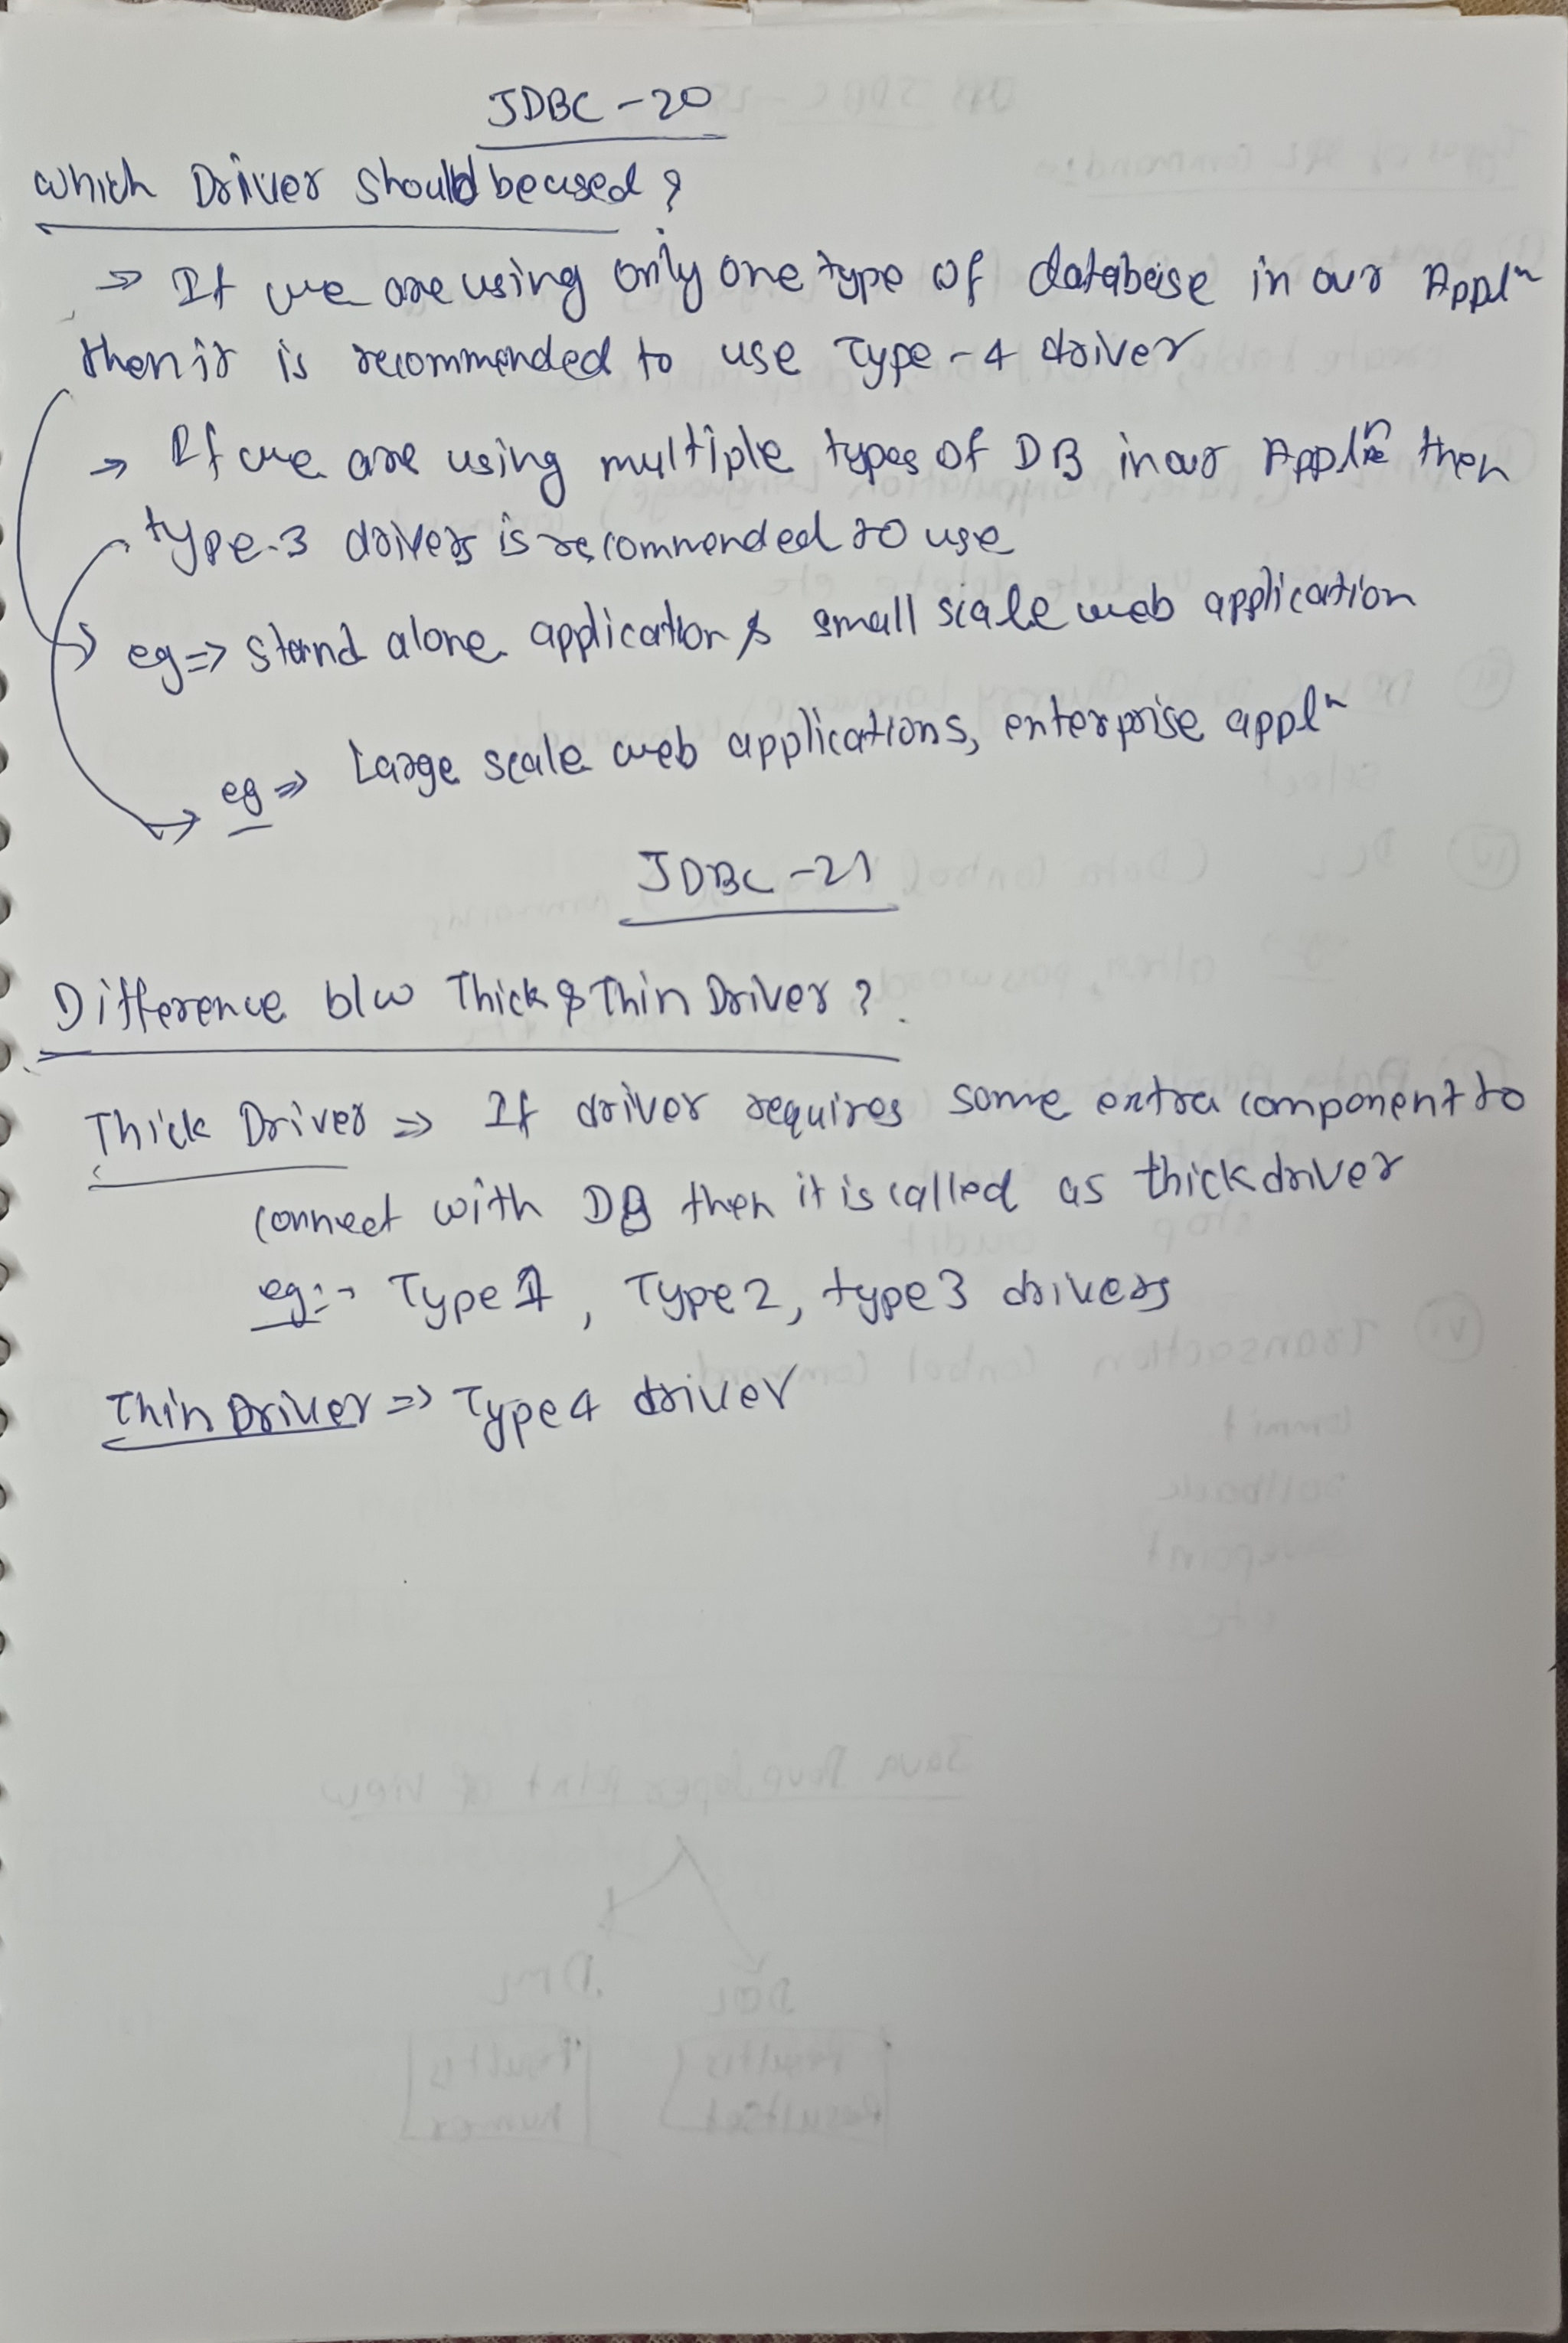 JDBC -20
Which Driver should be used ?
⇒ If we are using only one type of database in our Applⁿ
then it is recommended to use Type-4 driver
→ If we are using multiple types of DB in our Applⁿ then
type-3 drivers is recommended to use
eg => Stand alone application & small scale web application
eg => Large scale web applications, enterprise applⁿ
JDBC -21
Difference b/w Thick & Thin Driver ?
Thick Driver => If driver requires some extra component to
connect with DB then it is called as thick driver
eg:- Type 1, Type 2, type 3 drivers
Thin Driver => Type 4 driver